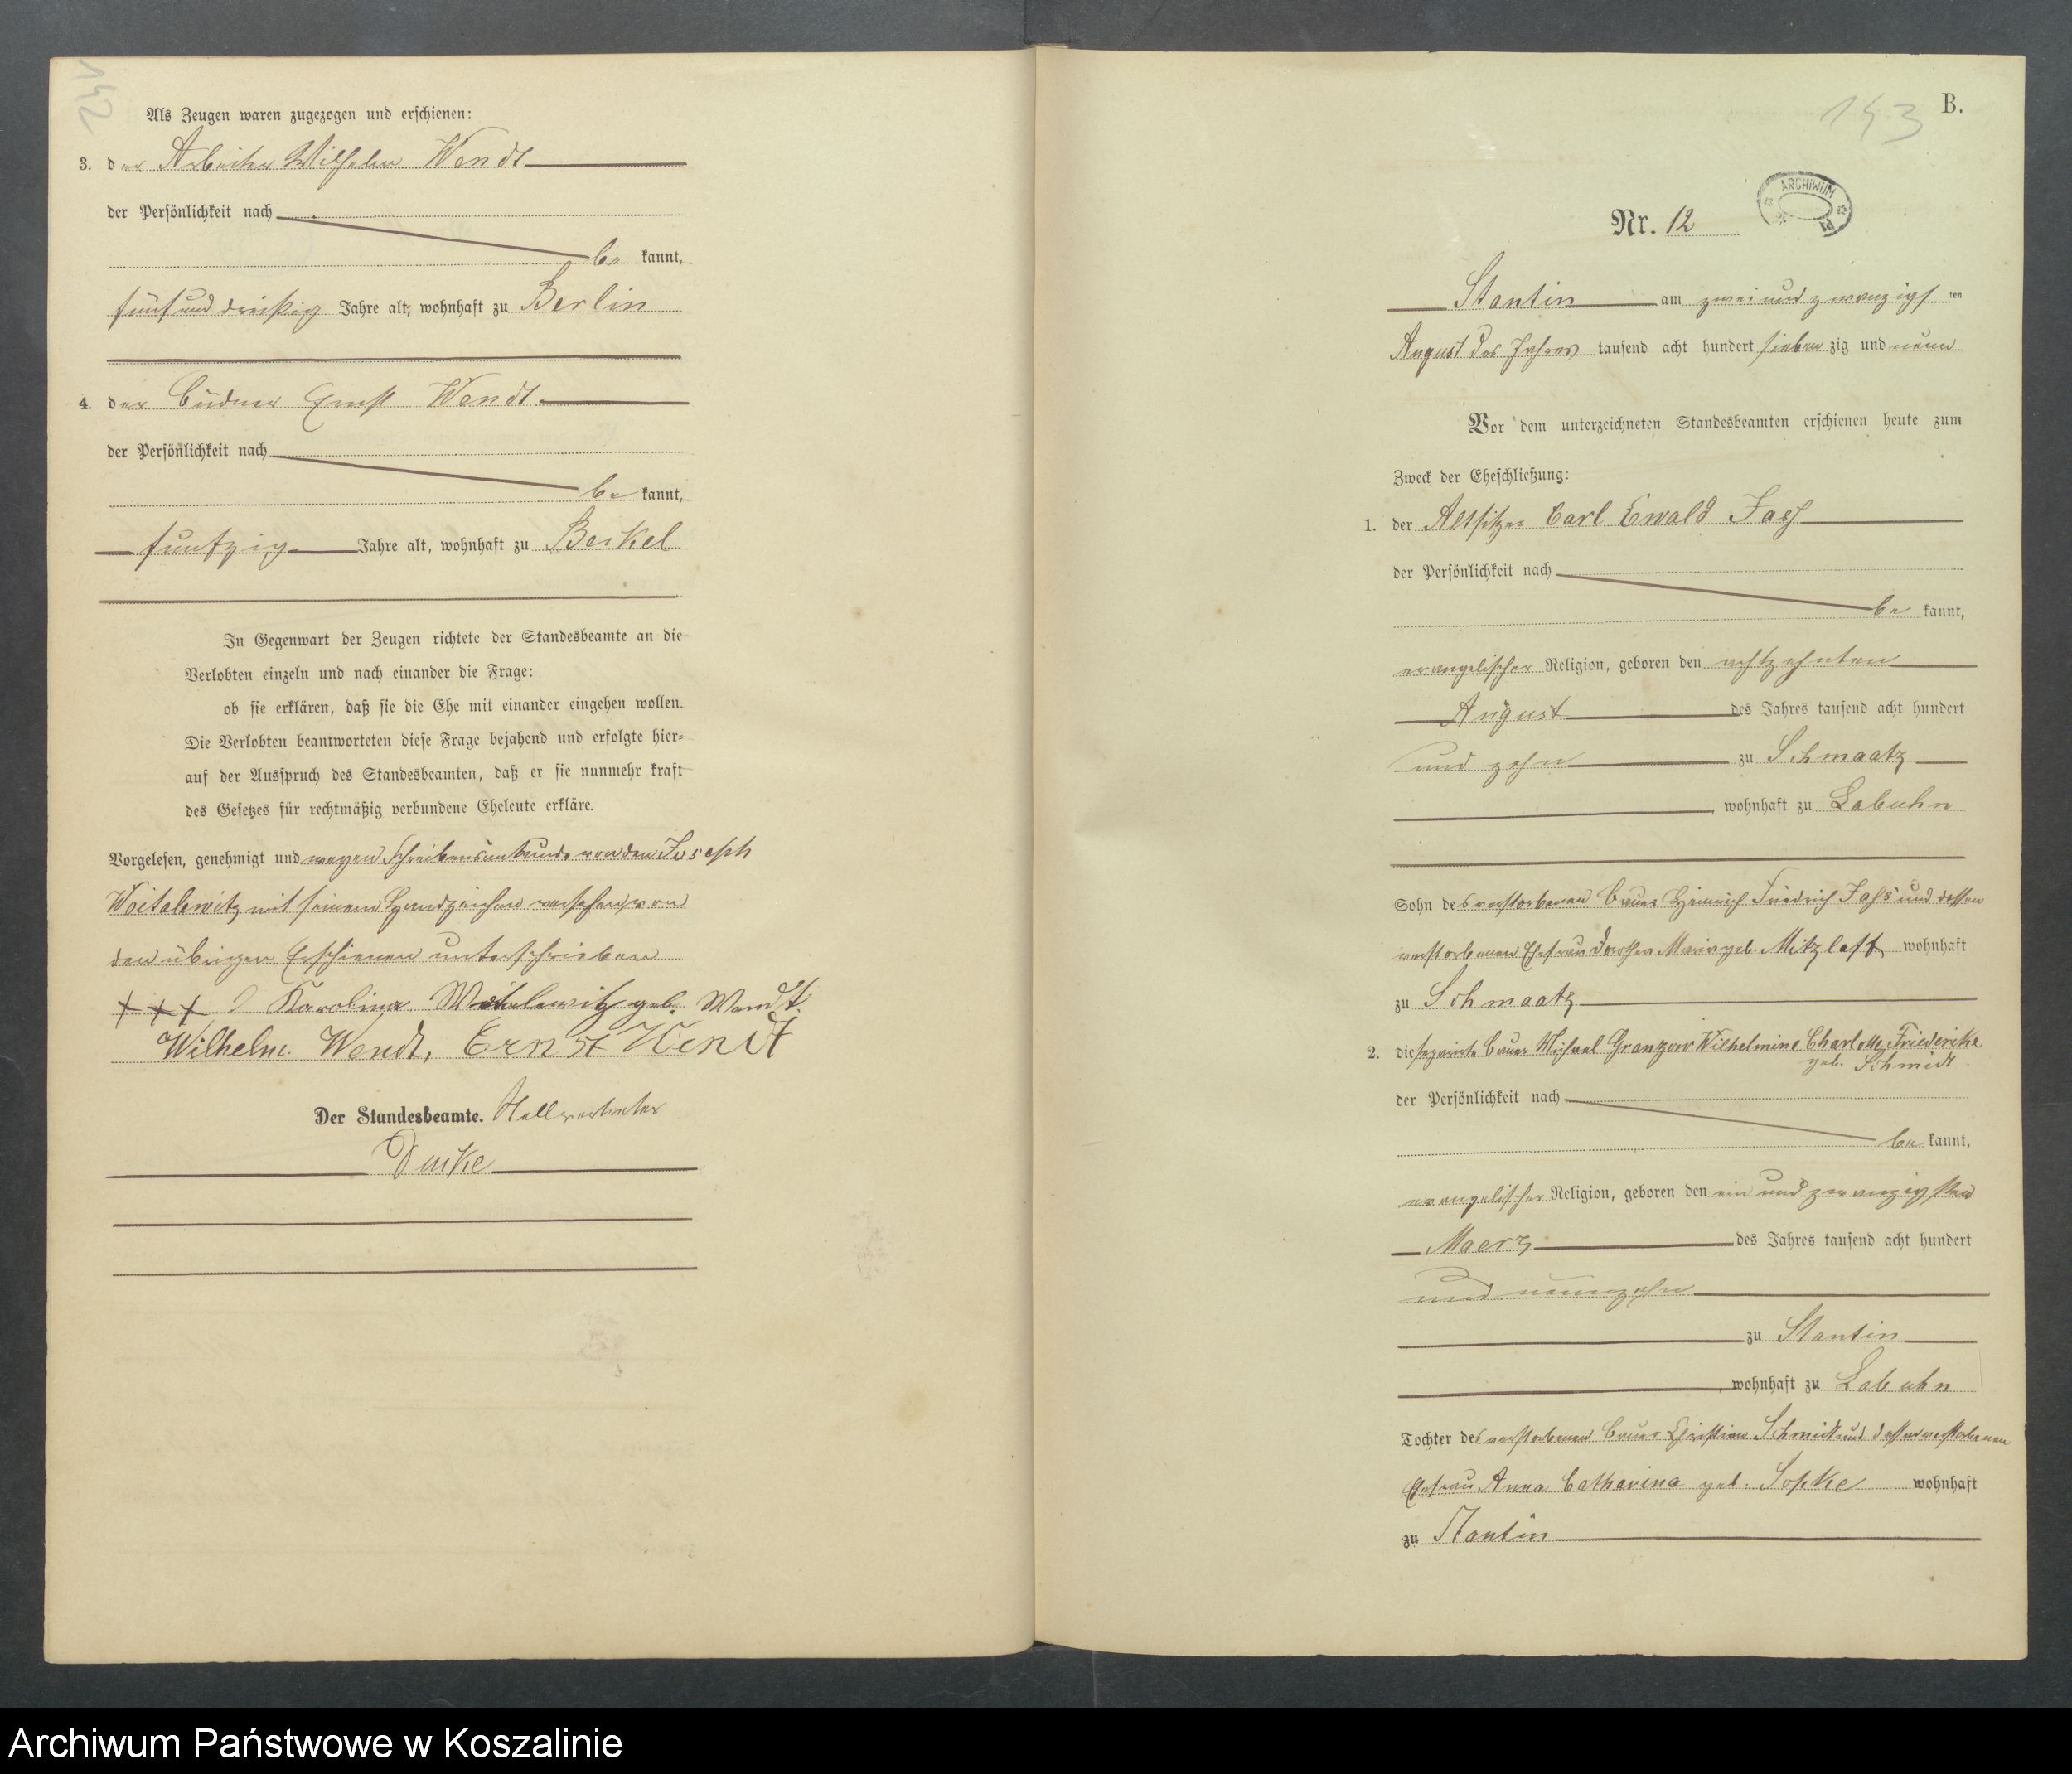 142
Als Zeugen waren zugezogen und erschienen:
3. der Arbeiter Wilhelm Wendt
der Persönlichkeit nach
be kannt,
fünf und dreißig Jahre alt, wohnhaft zu Berlin
4. der Büdner Ernst Wendt
der Persönlichkeit nach
be kannt,
funfzig Jahre alt, wohnhaft zu Beckel
In Gegenwart der Zeugen richtete der Standesbeamte an die
Verlobten einzeln und nach einander die Frage:
ob sie erklären, daß sie die Ehe mit einander eingehen wollen.
Die Verlobten beantworteten diese Frage bejahend und erfolgte hier-
auf der Ausspruch des Standesbeamten, daß er sie nunmehr kraft
des Gesetzes für rechtmäßig verbundene Eheleute erkläre.
Vorgelesen, genehmigt und wegen Schreibensunkunde von den Joseph
Woitalewitz mit seinem Handzeichen versehen von
den übrigen Erschienen unterschrieben
+++ Karolina Woitalewitz geb. Wendt.
Wilhelm Wendt, Ernst Wendt
Der Standesbeamte. Stellvertreter
143
B.
ARCHIWUM
Nr. 12
Stantin am zwei und zwanzigs ten
August des Jahres tausend acht hundert sieben zig und neun
Vor dem unterzeichneten Standesbeamten erschienen heute zum
Zweck der Eheschließung:
1. der Altsitzer Carl Ewald
der Persönlichkeit nach
be kannt,
evangelischer Religion, geboren den achtzehnten
August des Jahres tausend acht hundert
und zehn zu Schmaatz
, wohnhaft zu Labuhn
Sohn des verstorbenen Bauer Heinrich Friedrich und dessen
verstorbenen Ehefrau Dorothea Maria geb. Mitzlaff wohnhaft
zu Schmaatz
2. die separirte Bauer Michael Granzow Wilhelmine Charlotte Friederike
geb. Schmidt
der Persönlichkeit nach
be kannt,
evangelischer Religion, geboren den ein und zwanzigsten
Maerz des Jahres tausend acht hundert
und neunzehn
zu Stantin
, wohnhaft zu Labuhn
Tochter des verstorbenen Bauer Christian Schmidt und dessen verstorbenen
Ehefrau Anna Catharina geb. Sopke wohnhaft
zu Stantin
Archiwum Państwowe w Koszalinie